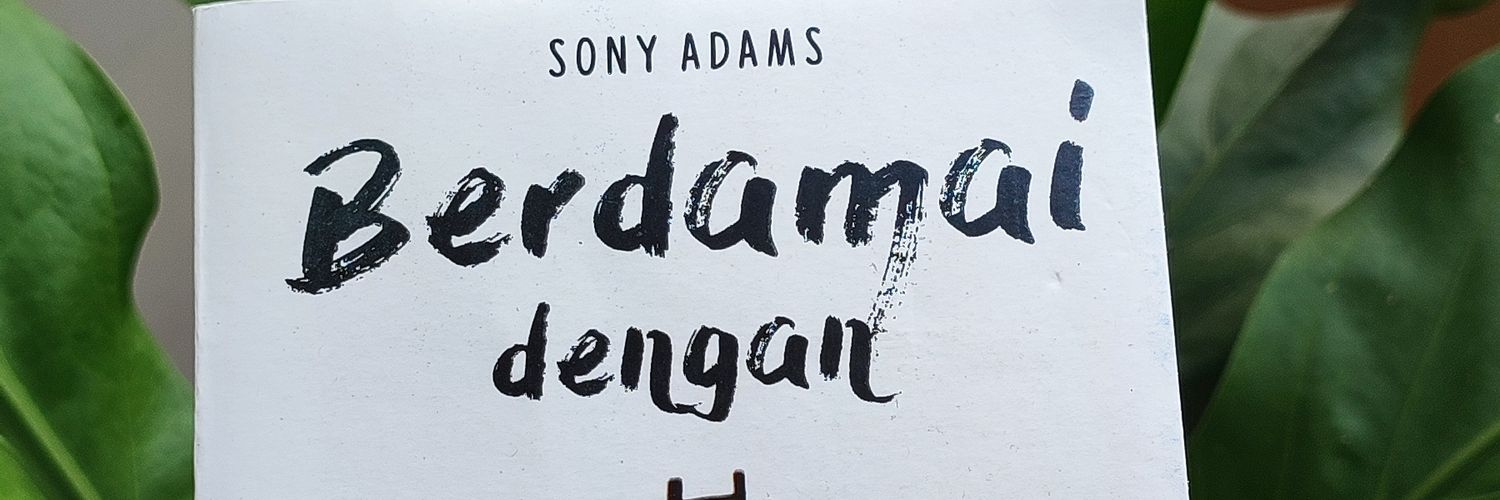 SONY ADAMS
Berdamai
dengan